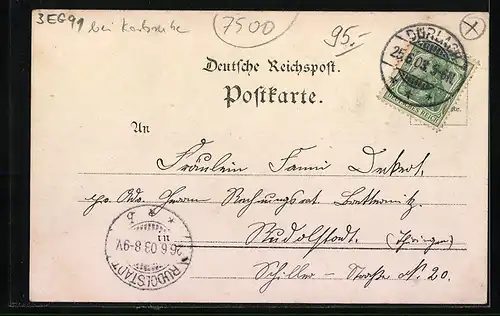 3EG91 bei Karlsruhe
7500
95.-
DURLACH
25.6.03
DEUTSCHES REICH
Deutsche Reichspost.
Postkarte.
An
Fräulein Fanni
Herrn Rechnungsrat
Rudolstadt. (Thüringen)
Schiller - Straße No 20.
RUDOLSTADT
26.6.03 8-9V.